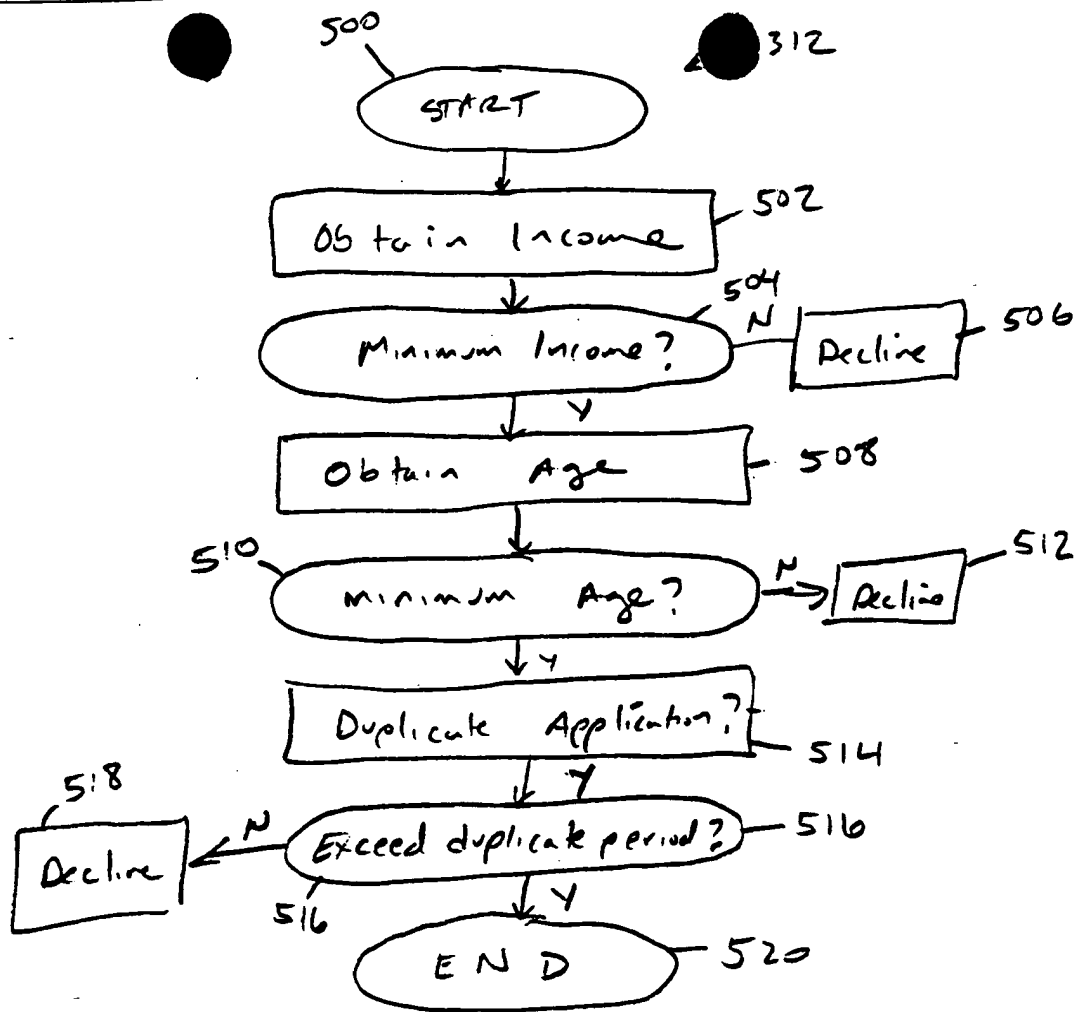 500
312
START
502
Obtain Income
504
Minimum Income?
N
506
Decline
Y
508
Obtain Age
510
minimum Age?
N
512
Decline
Y
Duplicate Application?
514
Y
518
Decline
N
Exceed duplicate period?
516
516
Y
END
520